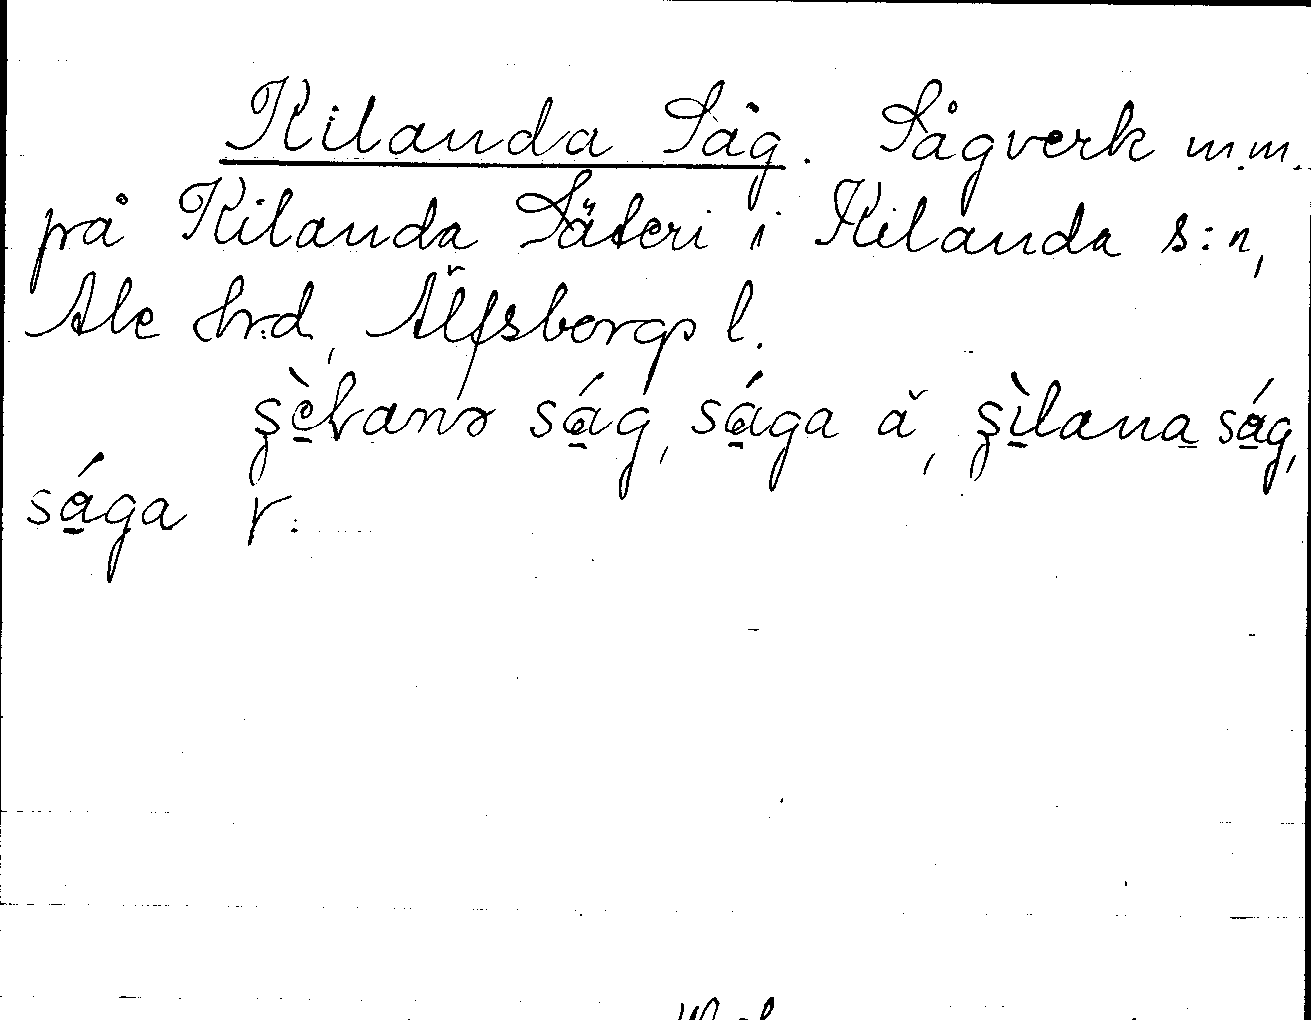 Kilanda Såg. Sågverk m.m.
på Kilanda Säteri i Kilanda s:n,
Ale hrd, Älfsborgs l.
ʂè̱lanə sá̱g, sá̱ga ä, ʂì̱lana̱ sá̱g,
sá̱ga r.